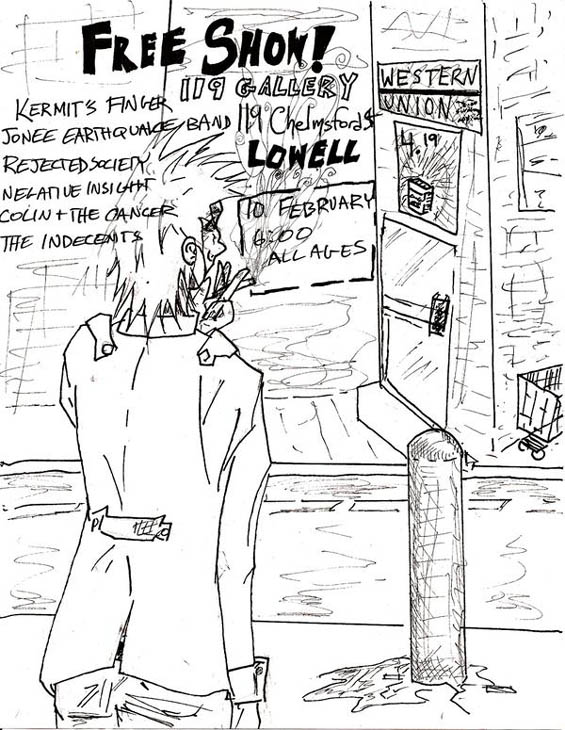 FREE SHOW!
119 GALLERY
119 Chelmsford St
LOWELL
KERMIT'S FINGER
JONEE EARTHQUAKE BAND
REJECTED SOCIETY
NEGATIVE INSIGHT
COLIN + THE CANCER
THE INDECENTS
10 FEBRUARY
6:00
ALL AGES
WESTERN
UNION
4.19